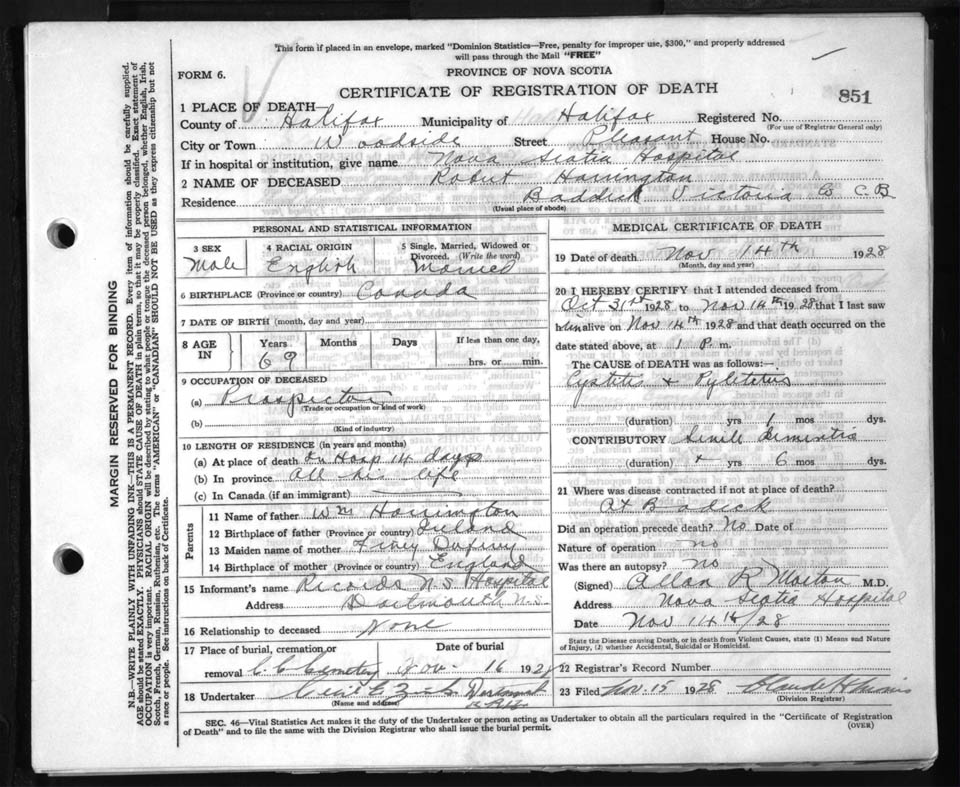 This form if placed in an envelope, marked "Dominion Statistics—Free, penalty for improper use, $300," and properly addressed
will pass through the Mail "FREE"
FORM 6.
PROVINCE OF NOVA SCOTIA
CERTIFICATE OF REGISTRATION OF DEATH
851
1 PLACE OF DEATH—
County of Halifax Municipality of Halifax Registered No.
(For use of Registrar General only)
City or Town Woodside Street Pleasant House No.
If in hospital or institution, give name Nova Scotia Hospital
2 NAME OF DECEASED Robert Harrington
Residence Baddeck Victoria Co C.B
(Usual place of abode)
PERSONAL AND STATISTICAL INFORMATION
3 SEX Male
4 RACIAL ORIGIN English
5 Single, Married, Widowed or Divorced. (Write the word) Married
6 BIRTHPLACE (Province or country) Canada
7 DATE OF BIRTH (month, day and year)
8 AGE IN Years 69 Months Days If less than one day, hrs. or min.
9 OCCUPATION OF DECEASED
(a) Prospector
(Trade or occupation or kind of work)
(b)
(Kind of industry)
10 LENGTH OF RESIDENCE (in years and months)
(a) At place of death In Hosp 14 days
(b) In province all his life
(c) In Canada (if an immigrant)
Parents
11 Name of father Wm Harrington
12 Birthplace of father (Province or country) Ireland
13 Maiden name of mother
14 Birthplace of mother (Province or country) England
15 Informant's name Records N.S Hospital
Address Dartmouth N.S
16 Relationship to deceased None
17 Place of burial, cremation or Date of burial
removal C.C. Cemetery Nov. 16 1928
18 Undertaker Dartmouth
(Name and address)
MEDICAL CERTIFICATE OF DEATH
19 Date of death Nov 14th 1928
(Month, day and year)
20 I HEREBY CERTIFY that I attended deceased from
Oct 31st 1928 to Nov 14th 1928 that I last saw
him alive on Nov 14th 1928 and that death occurred on the
date stated above, at 1 P. m.
The CAUSE of DEATH was as follows:—
Cystitis &
(duration) yrs 1 mos. dys.
CONTRIBUTORY Senile Dementia
(duration) yrs 6 mos. dys.
21 Where was disease contracted if not at place of death?
At Badeck
Did an operation precede death? No Date of
Nature of operation no
Was there an autopsy? No
(Signed) Allan R Morton M.D.
Address Nova Scotia Hospital
Date Nov 14th/28
State the Disease causing Death, or in death from Violent Causes, state (1) Means and Nature
of Injury, (2) whether Accidental, Suicidal or Homicidal.
22 Registrar's Record Number
23 Filed Nov. 15 1928
(Division Registrar)
SEC. 46—Vital Statistics Act makes it the duty of the Undertaker or person acting as Undertaker to obtain all the particulars required in the "Certificate of Registration
of Death" and to file the same with the Division Registrar who shall issue the burial permit.
(OVER)
MARGIN RESERVED FOR BINDING
N.B.—WRITE PLAINLY WITH UNFADING INK—THIS IS A PERMANENT RECORD. Every item of information should be carefully supplied.
AGE should be stated EXACTLY. PHYSICIANS should STATE CAUSE OF DEATH in plain terms, so that it may be properly classified. Exact statement of
OCCUPATION is very important. RACIAL ORIGIN will be described by stating to what people or tongue the deceased person belonged, whether English, Irish,
Scotch, French, German, Russian, Ruthenian, etc. The terms "AMERICAN" or "CANADIAN" SHOULD NOT BE USED as they express citizenship but not
a race or people. See instructions on back of Certificate.